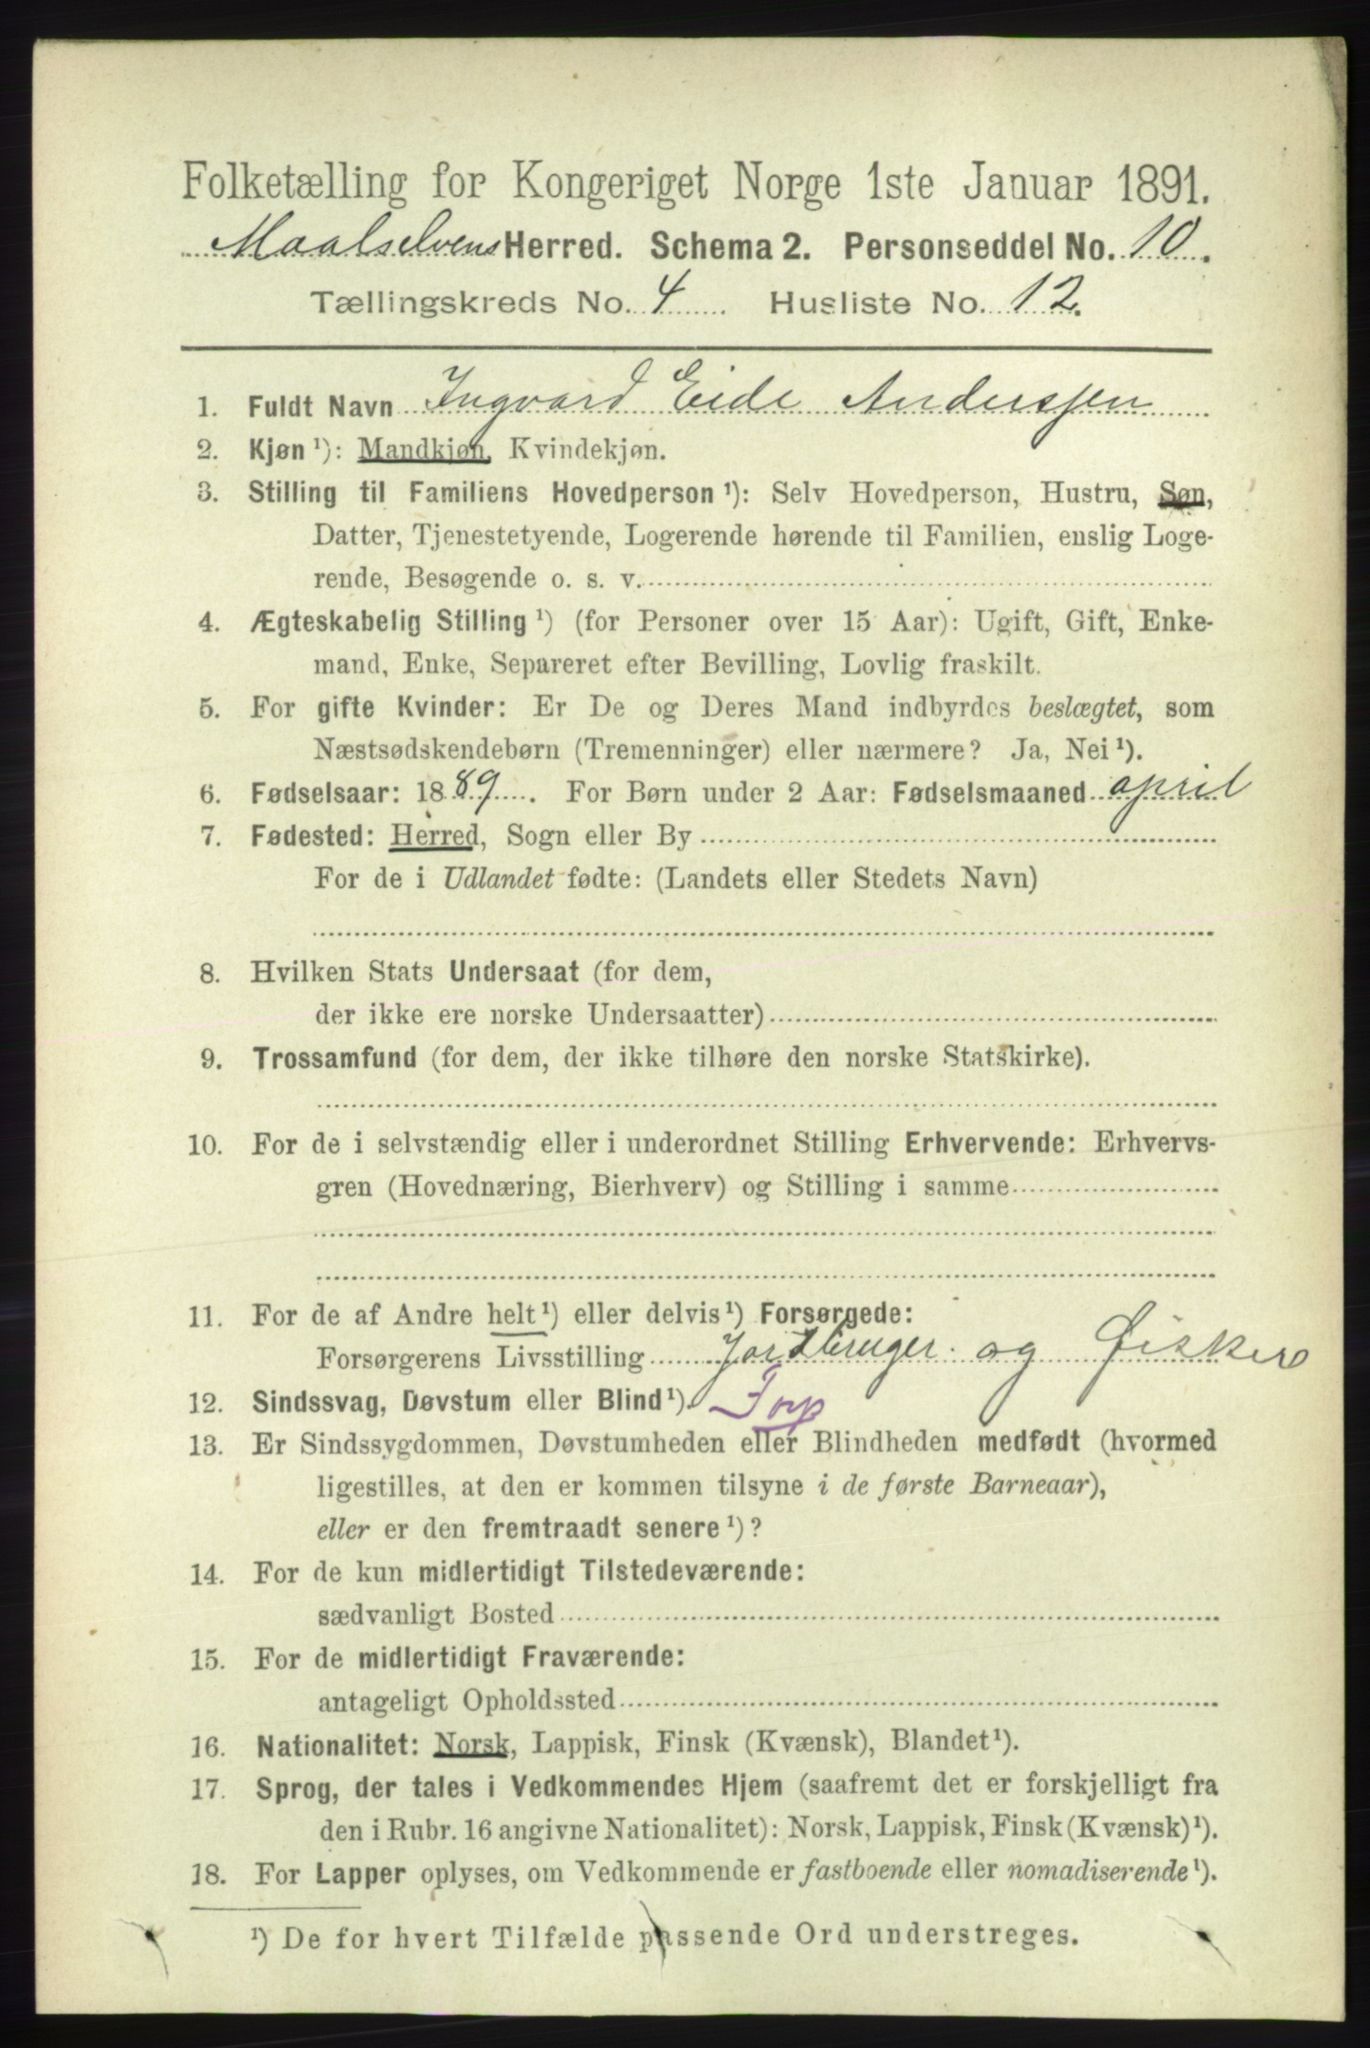 Folketælling for Kongeriget Norge 1ste Januar 1891.
Maalselvens Herred. Schema 2. Personseddel No. 10.
Tællingskreds No. 4 Husliste No. 12.
1. Fuldt Navn Ingvard Eide Anderssen
2. Kjøn ¹): Mandkjøn, Kvindekjøn.
3. Stilling til Familiens Hovedperson ¹): Selv Hovedperson, Hustru, Søn,
Datter, Tjenestetyende, Logerende hørende til Familien, enslig Loge-
rende, Besøgende o. s. v.
4. Ægteskabelig Stilling ¹) (for Personer over 15 Aar): Ugift, Gift, Enke-
mand, Enke, Separeret efter Bevilling, Lovlig fraskilt.
5. For gifte Kvinder: Er De og Deres Mand indbyrdes beslægtet, som
Næstsødskendebørn (Tremenninger) eller nærmere? Ja, Nei ¹).
6. Fødselsaar: 1889. For Børn under 2 Aar: Fødselsmaaned april
7. Fødested: Herred, Sogn eller By
For de i Udlandet fødte: (Landets eller Stedets Navn)
8. Hvilken Stats Undersaat (for dem,
der ikke ere norske Undersaatter)
9. Trossamfund (for dem, der ikke tilhøre den norske Statskirke).
10. For de i selvstændig eller i underordnet Stilling Erhvervende: Erhvervs-
gren (Hovednæring, Bierhverv) og Stilling i samme
11. For de af Andre helt ¹) eller delvis ¹) Forsørgede:
Forsørgerens Livsstilling Jordbruger og Fisker
12. Sindssvag, Døvstum eller Blind ¹).
13. Er Sindssygdommen, Døvstumheden eller Blindheden medfødt (hvormed
ligestilles, at den er kommen tilsyne i de første Barneaar),
eller er den fremtraadt senere ¹)?
14. For de kun midlertidigt Tilstedeværende:
sædvanligt Bosted
15. For de midlertidigt Fraværende:
antageligt Opholdssted
16. Nationalitet: Norsk, Lappisk, Finsk (Kvænsk), Blandet ¹).
17. Sprog, der tales i Vedkommendes Hjem (saafremt det er forskjelligt fra
den i Rubr. 16 angivne Nationalitet): Norsk, Lappisk, Finsk (Kvænsk) ¹).
18. For Lapper oplyses, om Vedkommende er fastboende eller nomadiserende ¹).
¹) De for hvert Tilfælde passende Ord understreges.